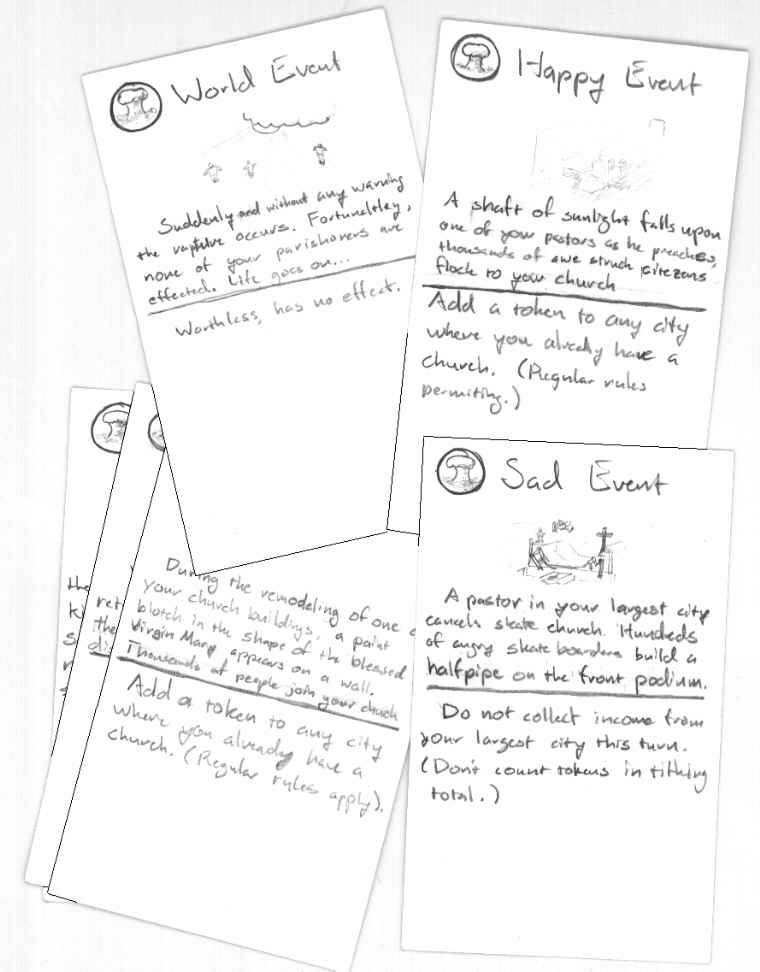 World Event
Suddenly and without any warning
the rapture occurs. Fortuneltley,
none of your parishoners are
effected. Life goes on...
Worthless, has no effect.
Happy Event
A shaft of sunlight falls upon
one of your pastors as he preaches,
thousands of awe struck citezens
flock to your church
Add a token to any city
where you already have a
church. (Regular rules
permiting.)
the
ki
s
ret
the
dis
During the remodeling of one o
your church buildings, a paint
blotch in the shape of the bleased
Virgin Mary appears on a wall.
Thousands of people join your chuch
Add a token to any city
where you already have a
church. (Regular rules apply).
Sad Event
A pastor in your largest city
cancels skate church. Hundeds
of angry skate boarders build a
halfpipe on the front podium.
Do not collect income from
your largest city this turn.
(Don't count tokens in tithing
total.)